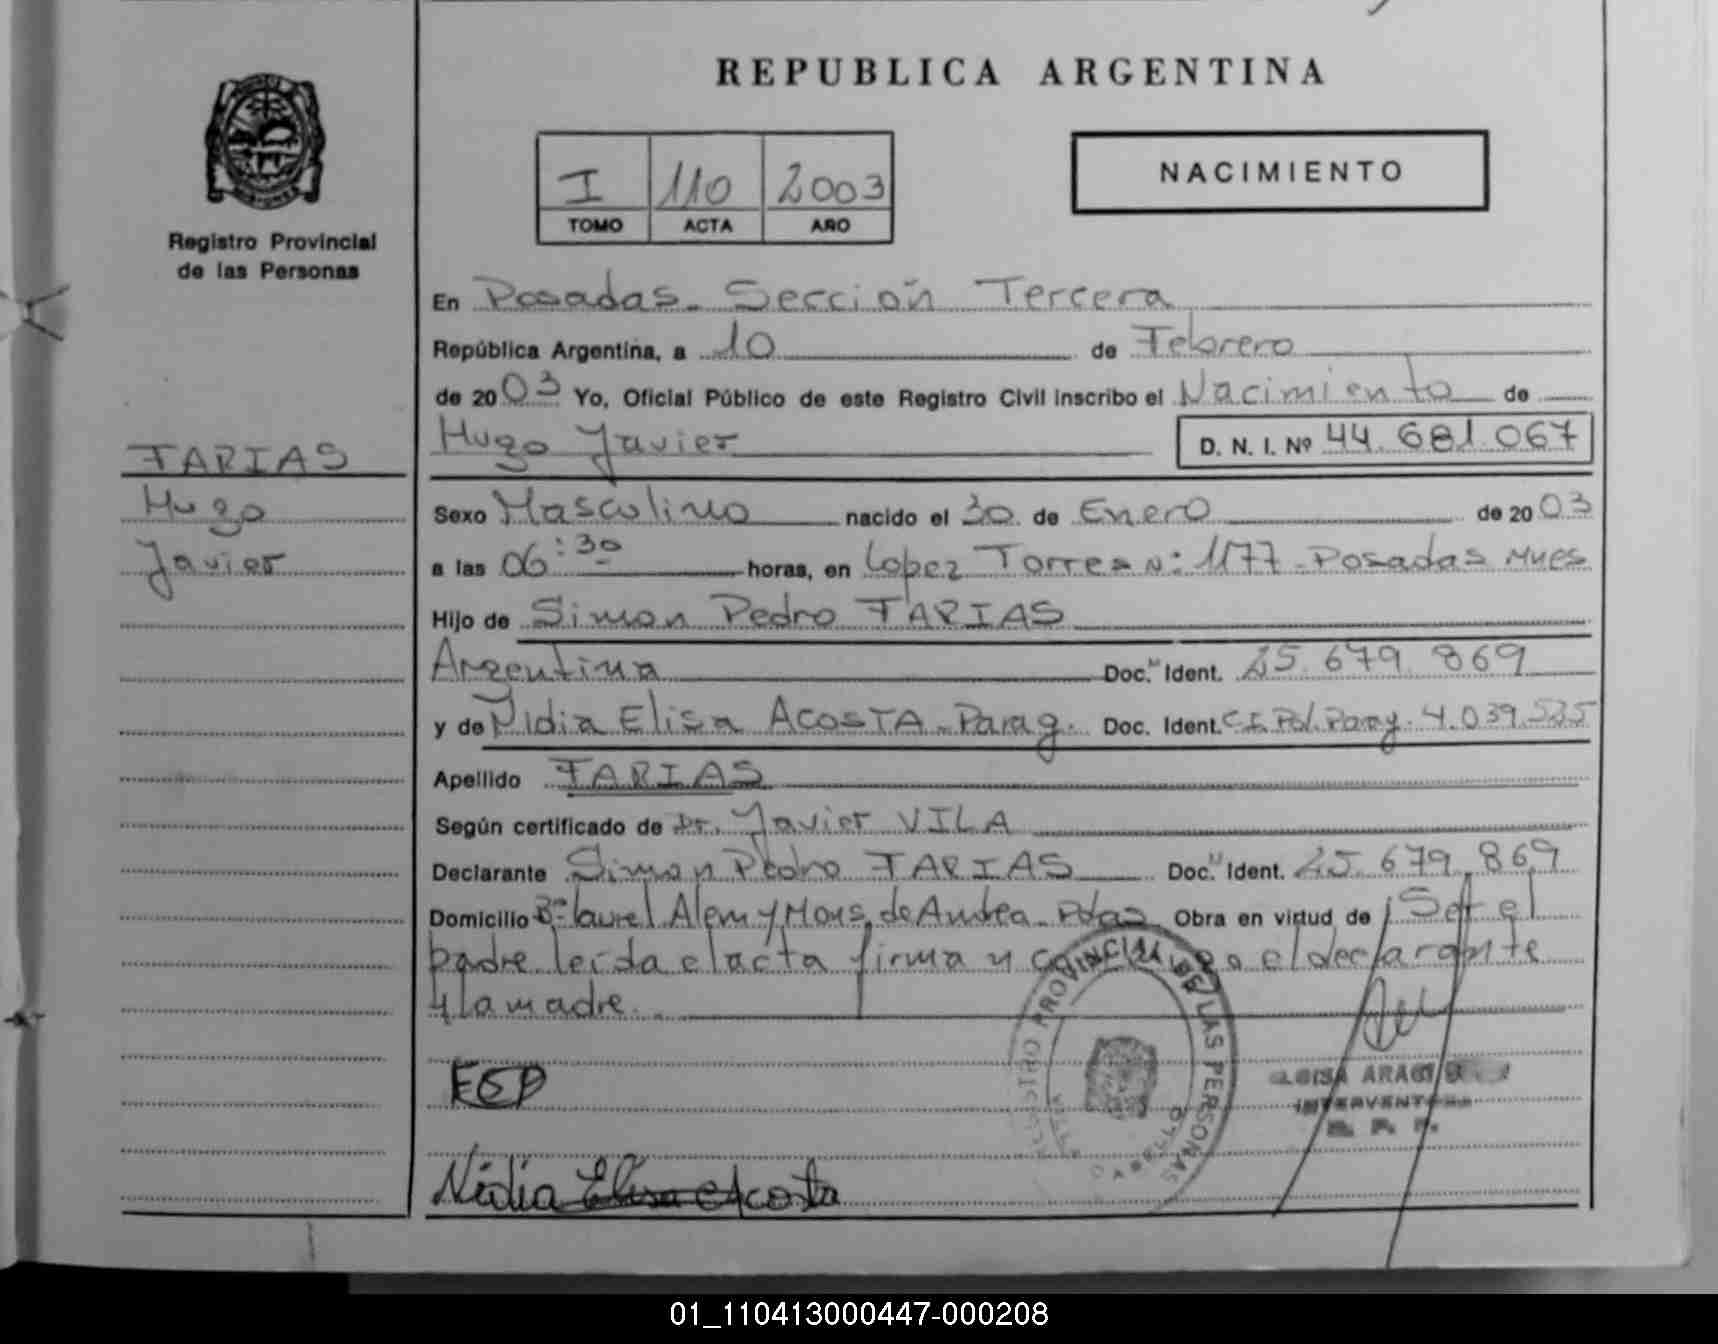 REPUBLICA ARGENTINA
I 110 2003
TOMO ACTA AÑO
NACIMIENTO
Registro Provincial
de las Personas
En Posadas - Sección Tercera
República Argentina, a 10 de Febrero
de 2003 Yo, Oficial Público de este Registro Civil inscribo el Nacimiento de
Hugo Javier D. N. I. Nº 44.681.067
FARIAS
Hugo
Javier
Sexo Masculino nacido el 30 de Enero de 2003
a las 06:30 horas, en Lopez Torres N: 1177 - Posadas Mnes
Hijo de Simon Pedro FARIAS
Argentina Doc. Ident. 25.679.869
y de Nidia Elisa ACOSTA - Parag. Doc. Ident. C.I. Pol. Paray. 4.039.535
Apellido FARIAS
Según certificado de Dr. Javier VILA
Declarante Simon Pedro FARIAS Doc. Ident. 25.679.869
Domicilio Bº laurel Alem y Mons. de Andrea - Pdas Obra en virtud de Ser el
padre leída el acta firma y el declarante
y la madre.
REGISTRO PROVINCIAL DE LAS PERSONAS
VILLA CABELLO
FSP
Nidia Elisa Acosta
INTERVENTORA
R. P. P.
01_110413000447-000208